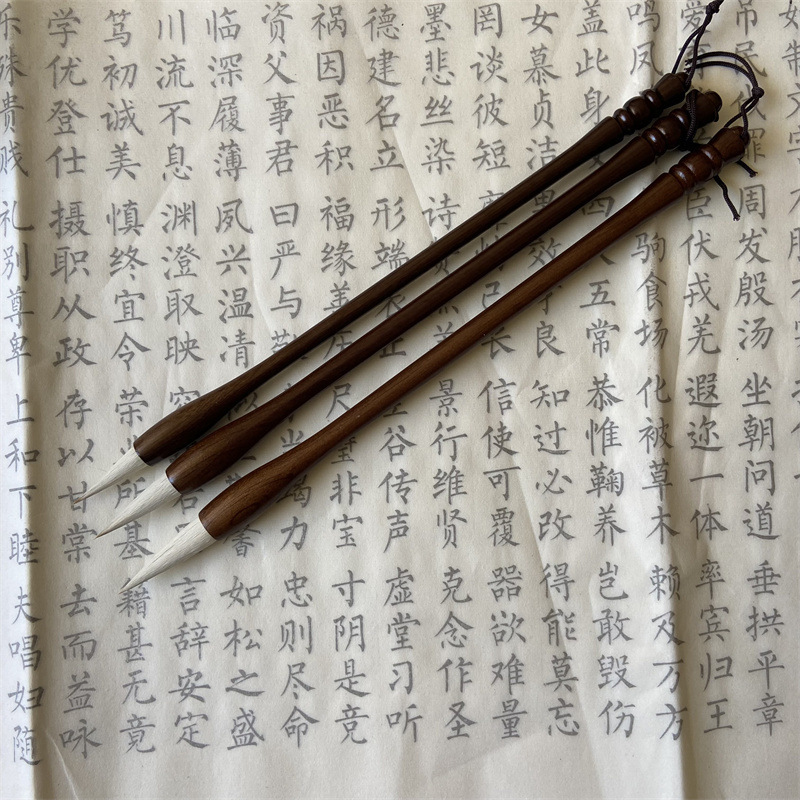 吊民伐罪周发殷汤坐朝问道垂拱平章
爱臣伏戎羌遐迩一体率宾归王
鸣凤驹食场化被草木赖及万方
盖此身四五常恭惟鞠养岂敢毁伤
女慕贞洁效良知过必改得能莫忘
罔谈彼短己长信使可覆器欲难量
墨悲丝染诗羊景行维贤克念作圣
德建名立形端正谷传声虚堂习听
祸因恶积福缘善庆尺璧非宝寸阴是竞
资父事君曰严与敬当竭力忠则尽命
临深履薄夙兴温清馨如松之盛
川流不息渊澄取映容言辞安定
笃初诚美慎终宜令荣所基籍甚无竟
学优登仕摄职从政存以甘棠去而益咏
乐殊贵贱礼别尊卑上和下睦夫唱妇随